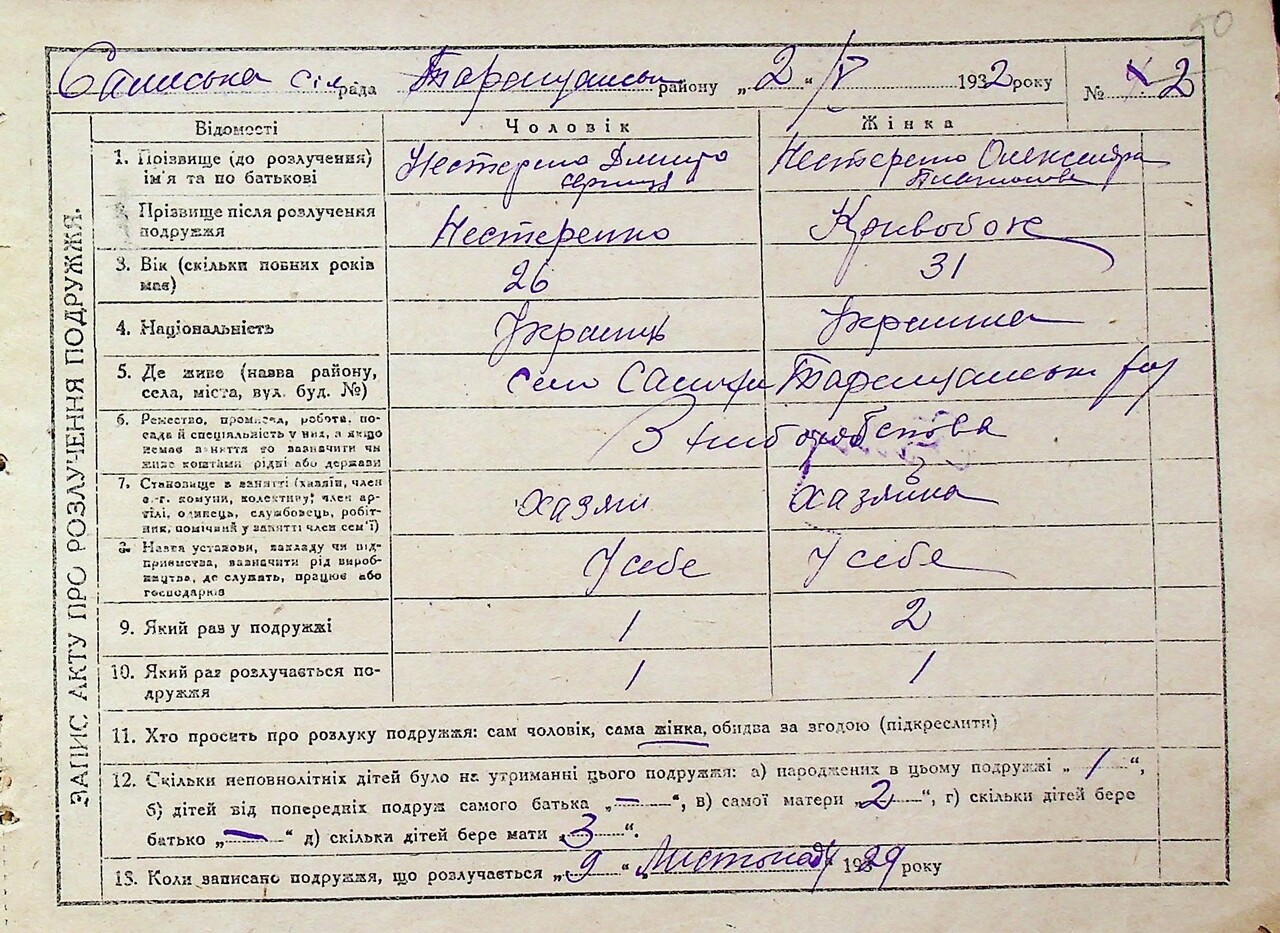 50
Салиська сільрада Таращанськ району „2“ V 1932 року № 2
ЗАПИС АКТУ ПРО РОЗЛУЧЕННЯ ПОДРУЖЖЯ.
Відомості Чоловік Жінка
1. Прізвище (до розлучення) Нестеренко Дмитро Нестеренко Олександра
ім'я та по батькові
2. Прізвище після розлучення Нестеренко Кривобок
подружжя
3. Вік (скільки повних років 26 31
має)
4. Національність Українць Українка
5. Де живе (назва району, село Таращанськ
села, міста, вул. буд. №)
6. Ремество, промисел, робота, по-
сада й спеціяльність у них, а якщо
немає заняття то зазначити чи
живе коштами рідні або держави
7. Становище в занятті (хазяїн, член Хазяїн Хазяйка
с.-г. комуни, колективу; член ар-
тілі, одинець, службовець, робіт-
ник, помічний у занятті член сем'ї)
8. Назва установи, закладу чи під- У себе У себе
приємства, зазначити рід вироб-
ництва, де служать, працює або
господарків
9. Який раз у подружжі 1 2
10. Який раз розлучається по- 1 1
дружжя
11. Хто просить про розлуку подружжя: сам чоловік, сама жінка, обидва за згодою (підкреслити)
12. Скільки неповнолітніх дітей було на утриманні цього подружжя: а) народжених в цьому подружжі „1“,
б) дітей від попередніх подруж самого батька „–“, в) самої матери „2“, г) скільки дітей бере
батько „–“ д) скільки дітей бере мати „3“.
13. Коли записано подружжя, що розлучається „9“ Листопада 1929 року